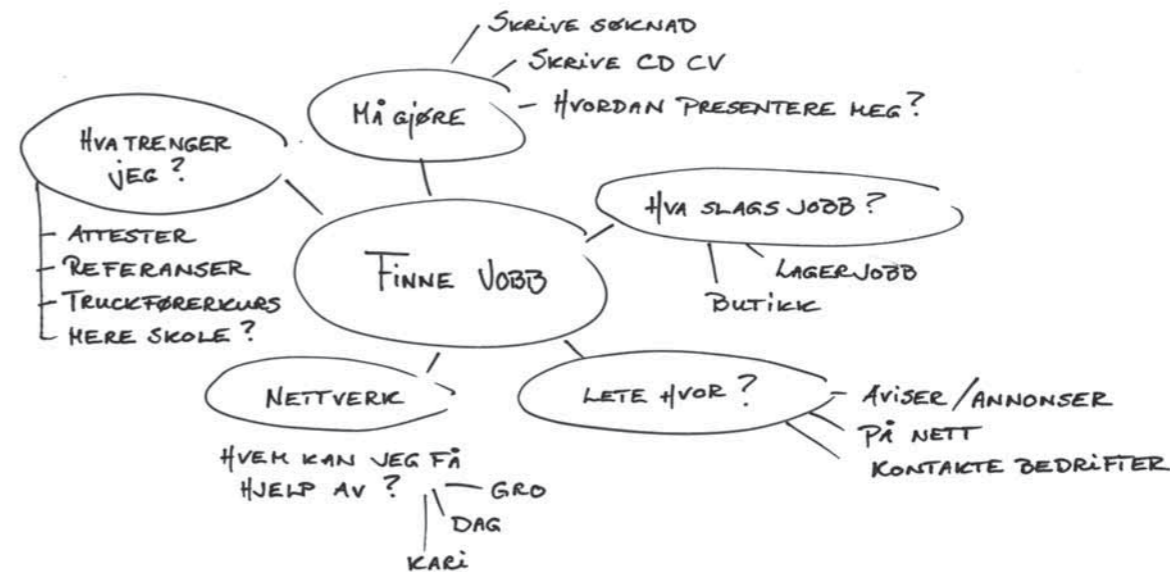 SKRIVE SØKNAD
SKRIVE CD CV
HVORDAN PRESENTERE MEG?
MÅ GJØRE
HVA TRENGER
JEG?
ATTESTER
REFERANSER
TRUCKFØRERKURS
MERE SKOLE?
FINNE JOBB
HVA SLAGS JOBB?
LAGERJOBB
BUTIKK
NETTVERK
HVEM KAN JEG FÅ
HJELP AV?
GRO
DAG
KARI
LETE HVOR?
AVISER/ANNONSER
PÅ NETT
KONTAKTE BEDRIFTER